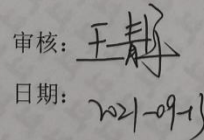 审核：王青
日期：2021-09-13